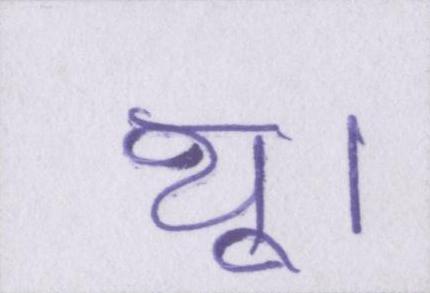 थू।